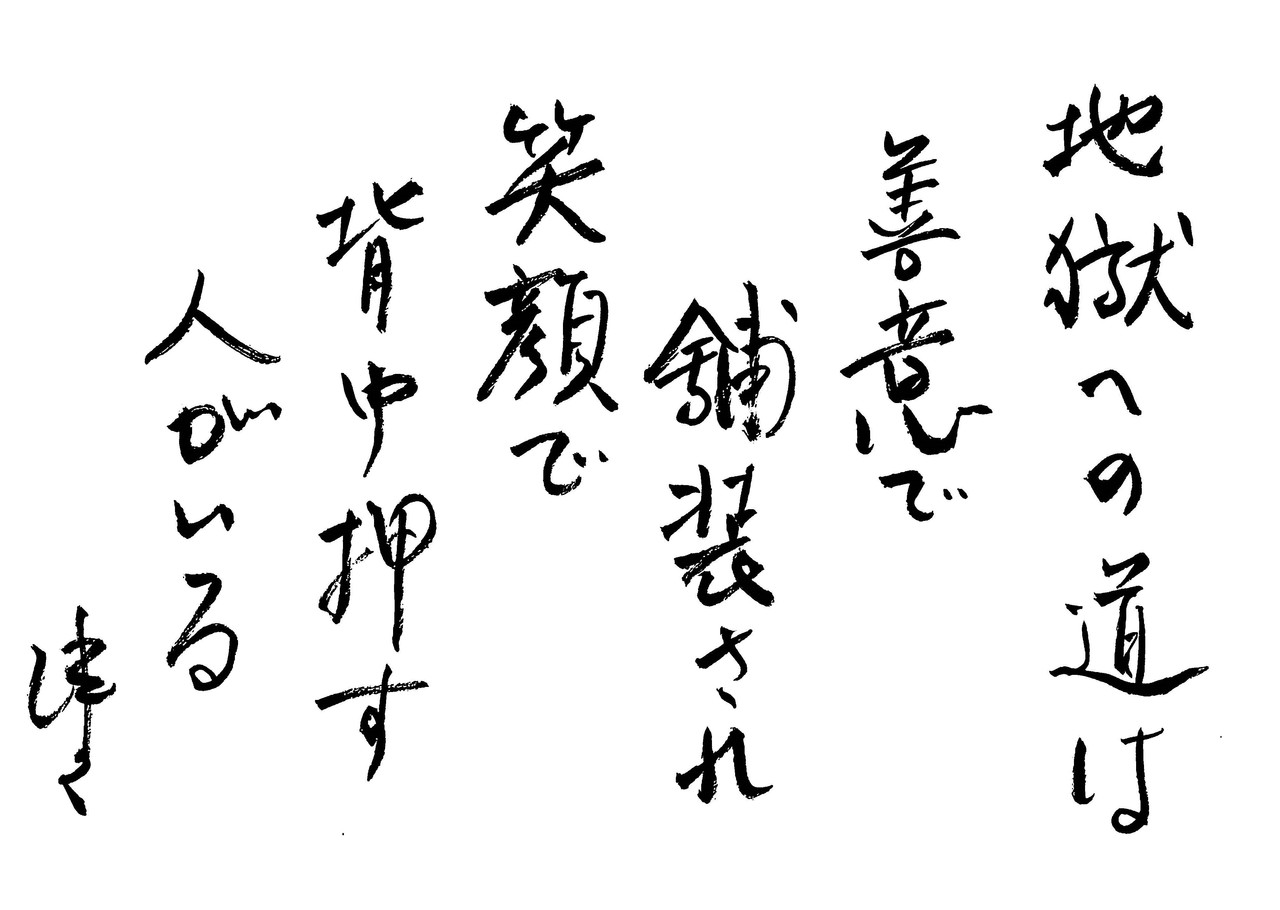 地獄への道は
善意で
舗装され
笑顔で
背中押す
人がいる
津々